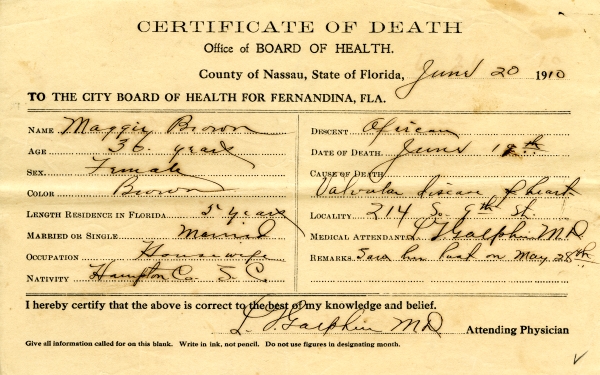 CERTIFICATE OF DEATH
Office of BOARD OF HEALTH.
County of Nassau, State of Florida, June 20 1910
TO THE CITY BOARD OF HEALTH FOR FERNANDINA, FLA.
NAME Maggie Brown
AGE 36 years
SEX. Female
COLOR Brown
LENGTH RESIDENCE IN FLORIDA 5 years
MARRIED OR SINGLE Married
OCCUPATION Housewife
NATIVITY Hampton Co. S. C.
DESCENT African
DATE OF DEATH. June 18th
CAUSE OF DEATH
Valvular disease of heart
LOCALITY 214 So. 9th St.
MEDICAL ATTENDANT L Galphin MD
REMARKS. Saw her last on May 28th
I hereby certify that the above is correct to the best of my knowledge and belief.
L. Galphin MD Attending Physician
Give all information called for on this blank. Write in ink, not pencil. Do not use figures in designating month.